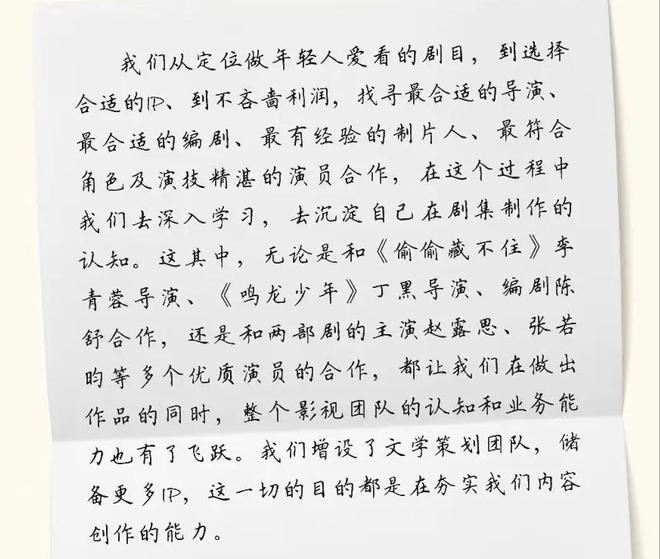 我们从定位做年轻人爱看的剧目，到选择
合适的IP、到不吝啬利润，找寻最合适的导演、
最合适的编剧、最有经验的制片人、最符合
角色及演技精湛的演员合作，在这个过程中
我们去深入学习，去沉淀自己在剧集制作的
认知。这其中，无论是和《偷偷藏不住》李
青蓉导演、《鸣龙少年》丁黑导演、编剧陈
舒合作，还是和两部剧的主演赵露思、张若
昀等多个优质演员的合作，都让我们在做出
作品的同时，整个影视团队的认知和业务能
力也有了飞跃。我们增设了文学策划团队，储
备更多IP，这一切的目的都是在夯实我们内容
创作的能力。